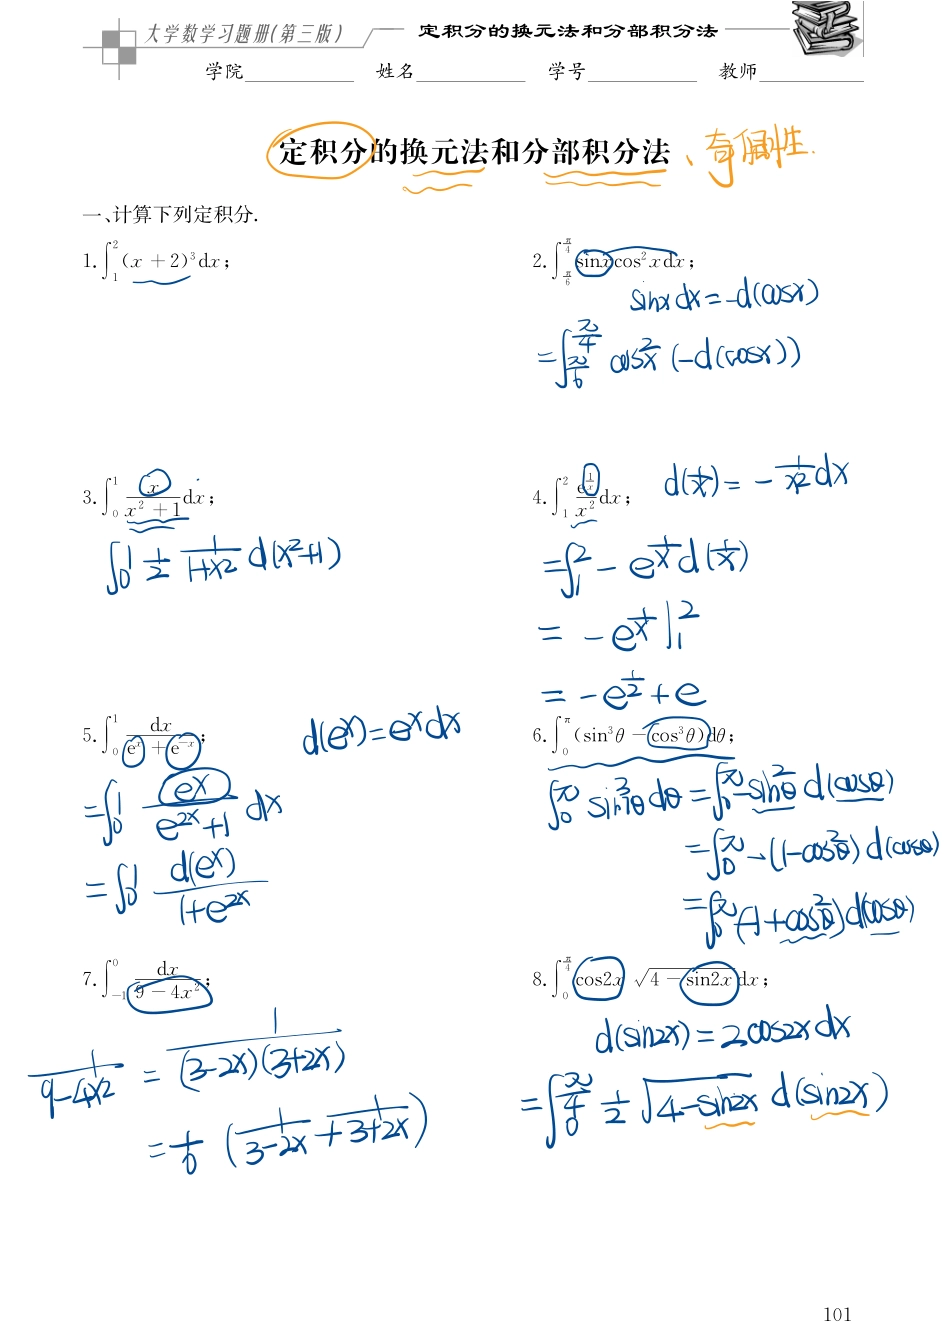 大学数学习题册(第三版) 定积分的换元法和分部积分法
学院 姓名 学号 教师
定积分的换元法和分部积分法、奇偶性.
一、计算下列定积分.
1. ∫₁² (x + 2)³ dx;
2. ∫_{π/6}^{π/4} sinxcos²xdx;
sinx dx = -d(cosx)
= ∫_{π/6}^{π/4} cos²x (-d(cosx))
3. ∫₀¹ x/(x² + 1) dx;
∫₀¹ 1/2 1/(1+x²) d(x²+1)
4. ∫₁² e^{1/x}/x² dx;
d(1/x) = - 1/x² dx
= ∫₁² - e^{1/x} d(1/x)
= - e^{1/x} |₁²
= - e^{1/2} + e
5. ∫₀¹ dx/(eˣ + e⁻ˣ);
d(eˣ) = eˣ dx
= ∫₀¹ eˣ/(e²ˣ+1) dx
= ∫₀¹ d(eˣ)/(1+e²ˣ)
6. ∫₀^π (sin³θ - cos³θ)dθ;
∫₀^π sin³θ dθ = ∫₀^π -sin²θ d(cosθ)
= ∫₀^π -(1-cos²θ) d(cosθ)
= ∫₀^π (-1+cos²θ) d(cosθ)
7. ∫₋₁⁰ dx/(9 - 4x²);
1/(9-4x²) = 1/((3-2x)(3+2x))
= 1/6 (1/(3-2x) + 1/(3+2x))
8. ∫₀^{π/4} cos2x √(4 - sin2x) dx;
d(sin2x) = 2cos2x dx
= ∫₀^{π/4} 1/2 √(4-sin2x) d(sin2x)
101